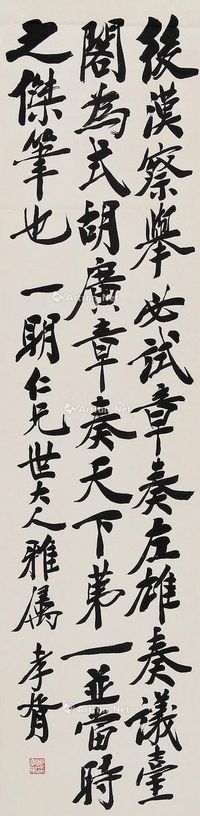 後漢察舉必試章奏左雄奏議臺
閣為式胡廣章奏天下第一並當時
之傑筆也一明仁兄世大人雅屬孝胥